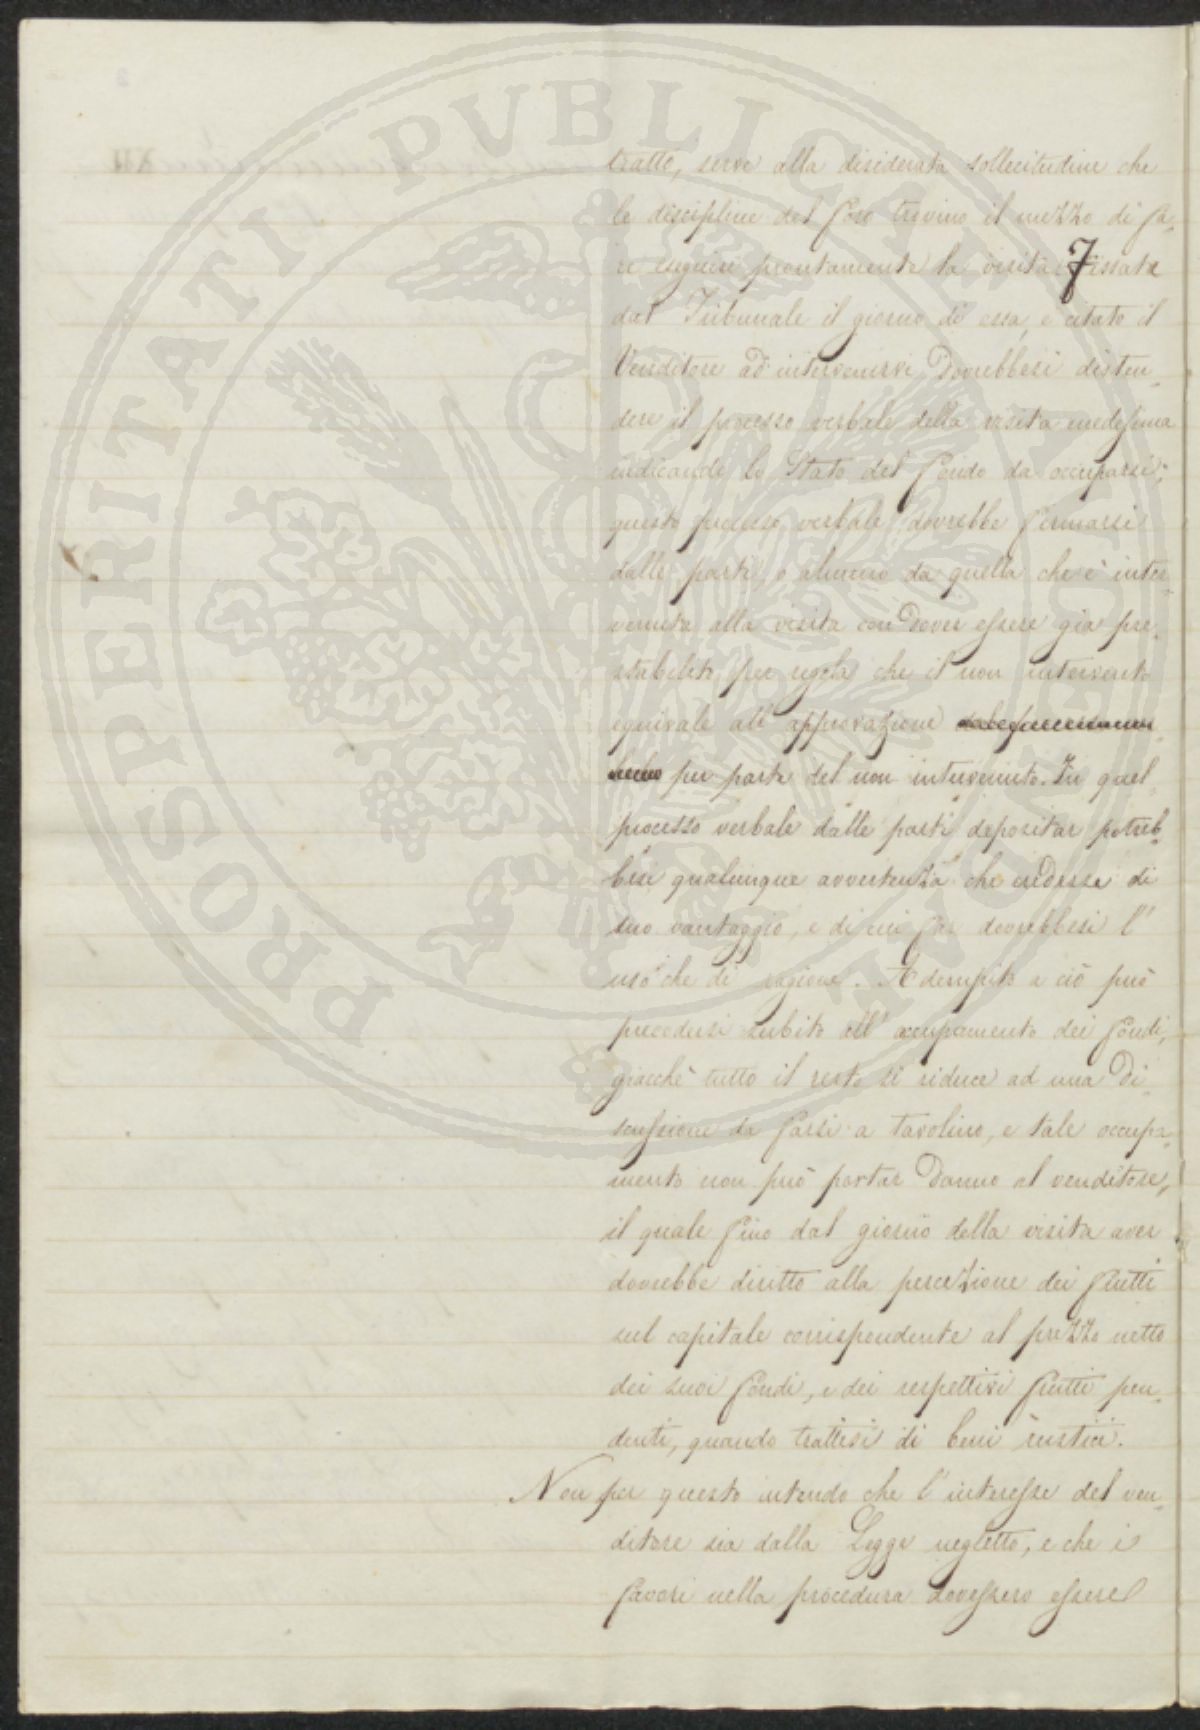 PROSPERITATI PUBLICAE AUGENDAE
tratto, serve alla desiderata sollecitudine che
le discipline del foro trovino il mezzo di fa-
re eseguire prontamente la visita. Fissata
dal Tribunale il giorno di essa, e citato il
Venditore ad intervenirvi dovrebbesi disten-
dere il processo verbale della visita medesima
indicando lo Stato del fondo da occuparsi;
questo processo verbale dovrebbe firmarsi
dalle parti, o almeno da quella che è inter-
venuta alla visita con dover essere già pre-
stabilito per regola che il non intervento
equivale all' approvazione
per parte del non intervenuto. In quel
processo verbale dalle parti depositar potreb-
besi qualunque avvertenza che credesse di
suo vantaggio, e di cui far dovrebbesi l'
uso che di ragione. Adempito a ciò può
procedersi subito all' occupamento dei fondi,
giacchè tutto il resto si riduce ad una di
scussione da farsi a tavolino, e tale occupa-
mento non può portar danno al venditore,
il quale fino dal giorno della visita aver
dovrebbe diritto alla percezione dei frutti
sul capitale corrispondente al prezzo netto
dei suoi fondi, e dei respettivi frutti pen-
denti, quando trattisi di beni rustici.
Non per questo intendo che l' interesse del ven-
ditore sia dalla Legge negletto, e che i
favori nella procedura dovessero essere